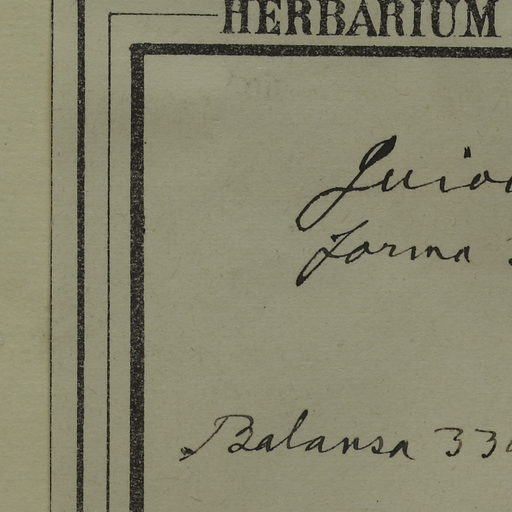 HERBARIUM
forma
Balansa 33